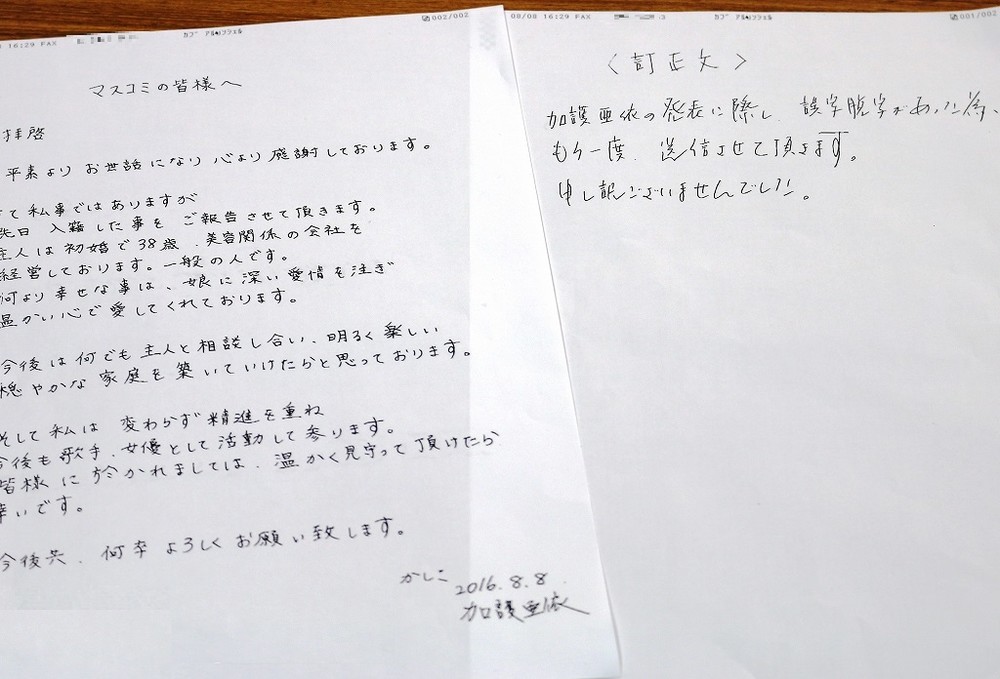 16:29 FAX
002/002
マスコミの皆様へ
拝啓
平素より お世話になり 心より 感謝しております。
て 私事ではありますが
先日 入籍した事を ご報告させて頂きます。
主人は 初婚で 38歳、美容関係の会社を
経営しております。一般の人です。
何より幸せな事は、娘に深い愛情を注ぎ
温かい心で愛してくれております。
今後は何でも主人と相談し合い、明るく楽しい
穏やかな家庭を築いていけたらと思っております。
そして私は 変わらず精進を重ね
今後も歌手、女優として活動して参ります。
皆様に於かれましては、温かく見守って頂けたら
幸いです。
今後共、何卒よろしくお願い致します。
かしこ
2016.8.8
加護亜依
08/08 16:29 FAX
001/002
〈訂正文〉
加護亜依の発表に際し、誤字脱字があった為、
もう一度、送信させて頂きます。
申し訳ございませんでした。